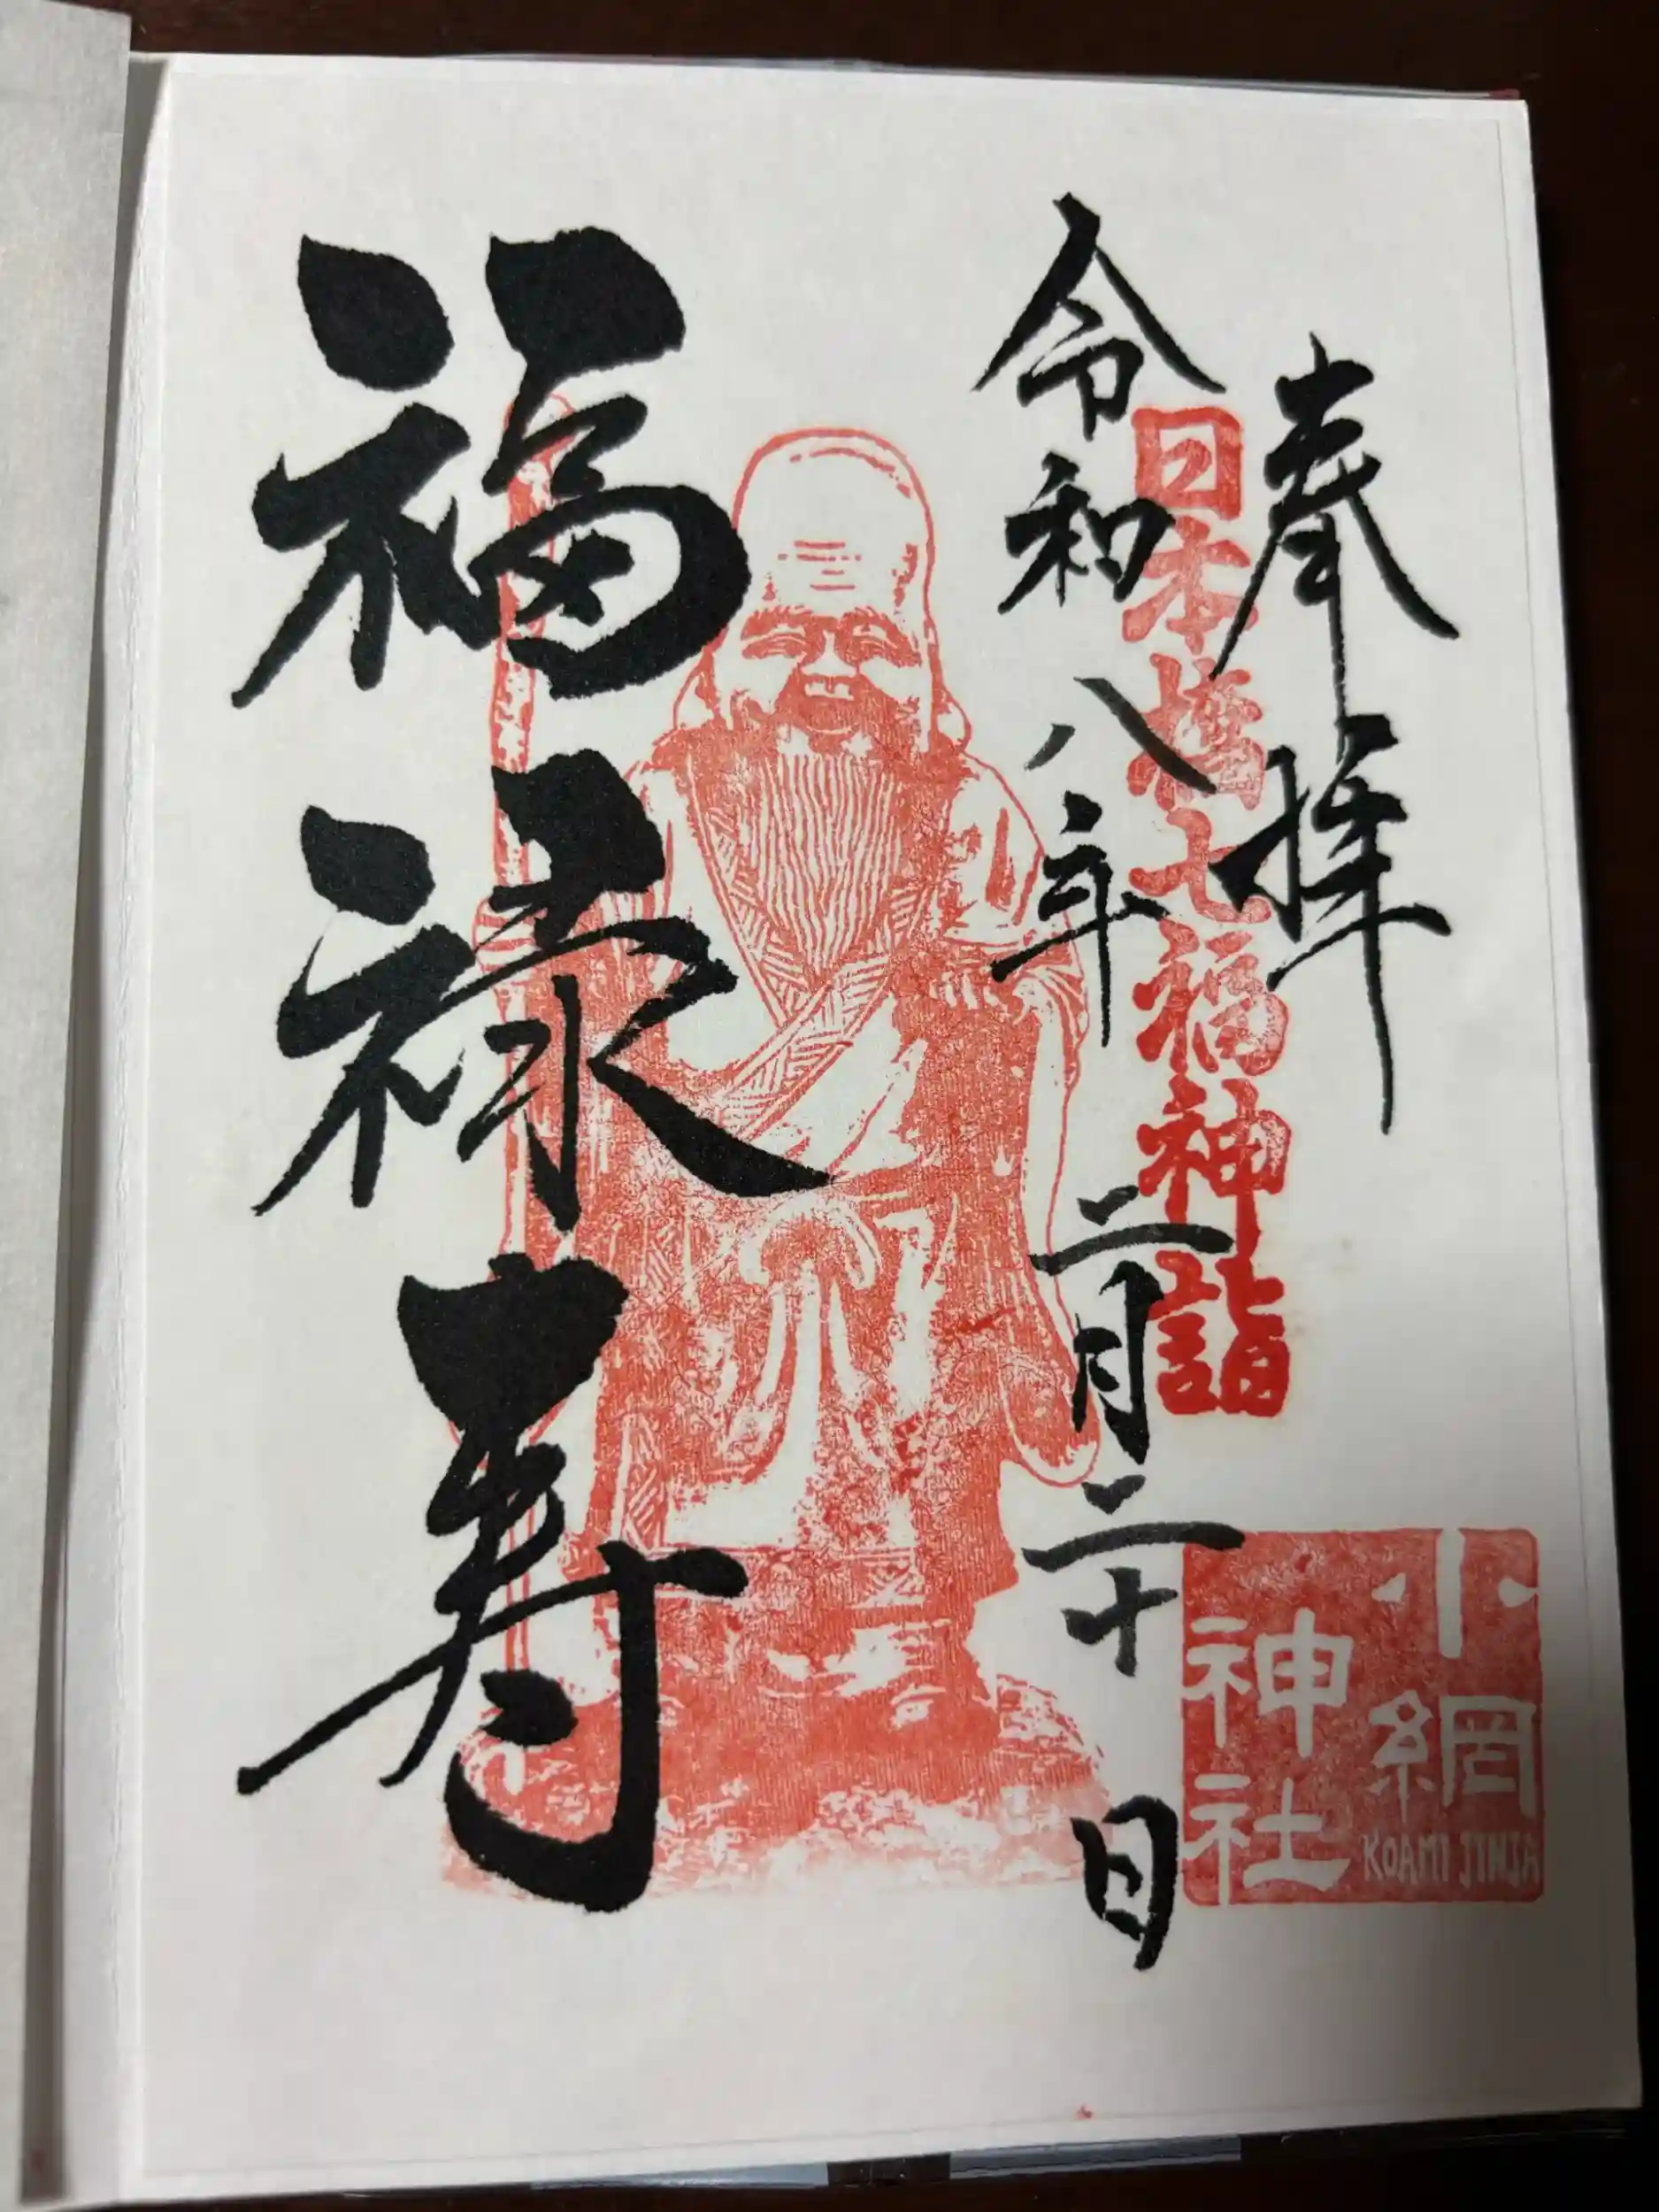 奉拝
日本橋七福神詣
小網
神社
KOAMI JINJA
令和八年二月二十日
福禄寿